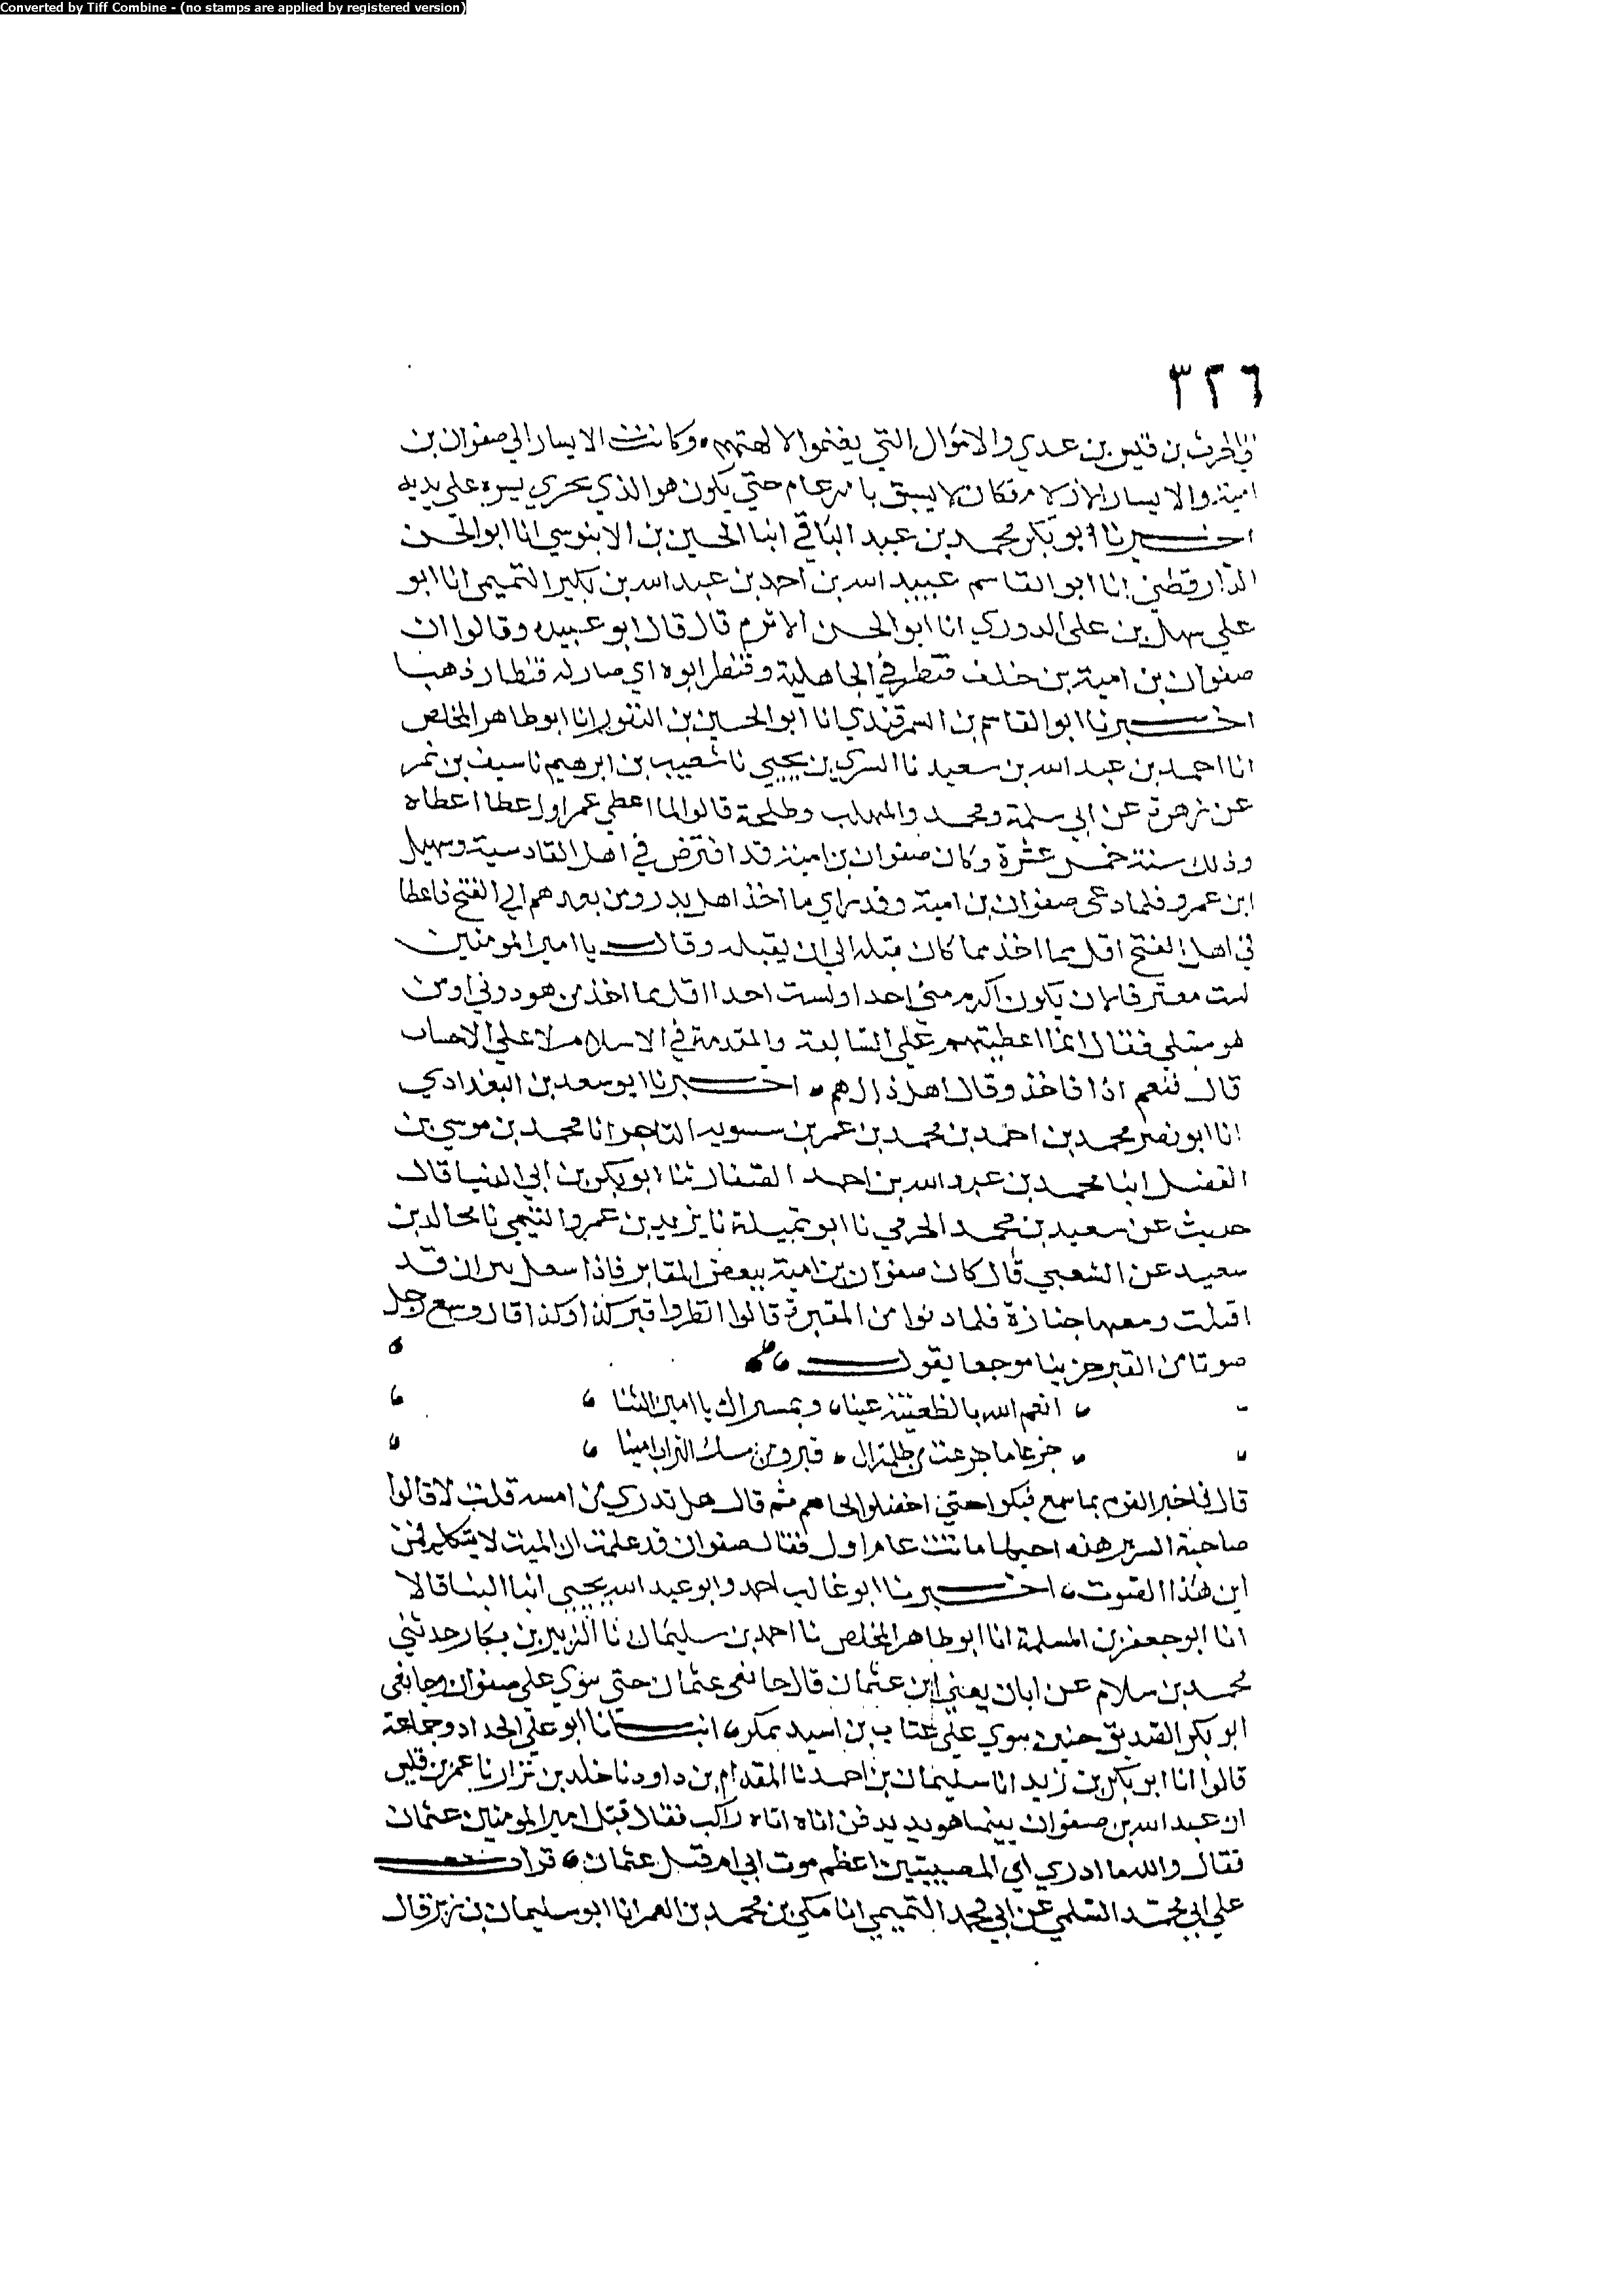 Converted by Tiff Combine - (no stamps are applied by registered version)
٣٢٦
بن قيس بن عدي والاموال التي يغنموا لالهتهم وكانت الايسار الى صفوان بن
امية والايسار الازلام فكان لا يسبق بامر عام حتى يكون هو الذي يجري يسره على يديه
اخبرنا ابو بكر محمد بن عبد الباقي ابنا الحسين بن الابنوسي انا ابو الحسن
الدارقطني انا ابو القاسم عبيد الله بن احمد بن عبد الله بن بكير التميمي انا ابو
علي سهل بن علي الدوري انا ابو الحسن الاثرم قال قال ابو عبيده وقالوا ان
صفوان بن امية بن خلف قنطر في الجاهلية وقنطر ابوه اي صار له قنطار ذهب
اخبرنا ابو القاسم بن السمرقندي انا ابو الحسين بن النقور انا ابو طاهر المخلص
انا احمد بن عبد الله بن سعيد نا السري بن يحيي نا شعيب بن ابرهيم نا سيف بن عمر
عن زهرة عن ابي سلمة ومحمد والمهلب وطلحة قالوا لما اعطي عمر اول عطا اعطاه
وذلك سنة خمس عشرة وكان صفوان بن امية قد افترض في اهل القادسية وسهيل
ابن عمرو فلما دعى صفوان بن امية وقد راي ما اخذ اهل بدر ومن بعدهم الى الفتح فاعطا
في اهل الفتح اقل مما اخذ مما كان قبله ابي ان يقبله وقال يا امير المومنين
لست معترفا لان يكون اكرم مني احدا ولست احدا اقل مما اخذ من هو دوني او من
هو مثلي فقال انما اعطيتهم على السابقة والمقدمة في الاسلام لا على الاحساب
قال فنعم اذا فاخذ وقال اهل ذاك هم اخبرنا ابو سعد بن البغدادي
انا ابو نصر محمد بن احمد بن محمد بن عمر بن سسويه التاجر انا محمد بن موسي بن
الفضل ابنا محمد بن عبد الله بن احمد الصفار ثنا ابو بكر بن ابي الدنيا قال
حديث عن سعيد بن محمد الجرمي نا ابو تميلة نا يزيد بن عمرو التيمي نا مجالد بن
سعيد عن الشعبي قال كان صفوان بن امية ببعض المقابر فاذا قد
اقبلت ومعها جنازة فلما دنوا من المقبرة قالوا انظروا قبر كذا وكذا قال وسمع رجل
صوتا من القبر حزينا موجعا يقول
انعم الله بالظعينة عينا وبمسراك يا امين الينا
جزعا ما جزعت من ظلمة ال قبر ومن مسك التراب امينا
قال فاخبر القوم بما سمع فبكوا حتى اخضلوا لحاهم ثم قال هل تدري من امينة قلت لا قالوا
صاحبة السرير هذه اختها ماتت عام اول فقال صفوان قد علمت ان الميت لا يتكلم فمن
اين هذا الصوت اخبرنا ابو غالب احمد وابو عبد الله يحيي ابنا البنا قالا
انا ابو جعفر بن المسلمة انا ابو طاهر المخلص نا احمد بن سليمان نا الزبير بن بكار حدثني
محمد بن سلام عن ابان يعني ابن عثمان قال جا نعي عثمان حتى سوي على صفوان وجا نعي
ابو بكر الصديق حين سوي على عتاب بن اسيد بمكه انبانا ابو علي الحداد وجماعة
قالوا انا ابو بكر بن زيد انا سليمان بن احمد نا المقدام بن داود نا خالد بن نزار نا عمر بن قيس
ان عبد الله بن صفوان بينما هو يدفن اباه اتاه راكب فقال قتل امير المومنين عثمان
فقال والله ما ادري اي المصيبتين اعظم موت ابي ام قتل عثمان قرات
على ابي محمد السلمي عن ابي محمد التميمي انا مكي بن محمد بن الغمر انا ابو سليمان بن زبر قال